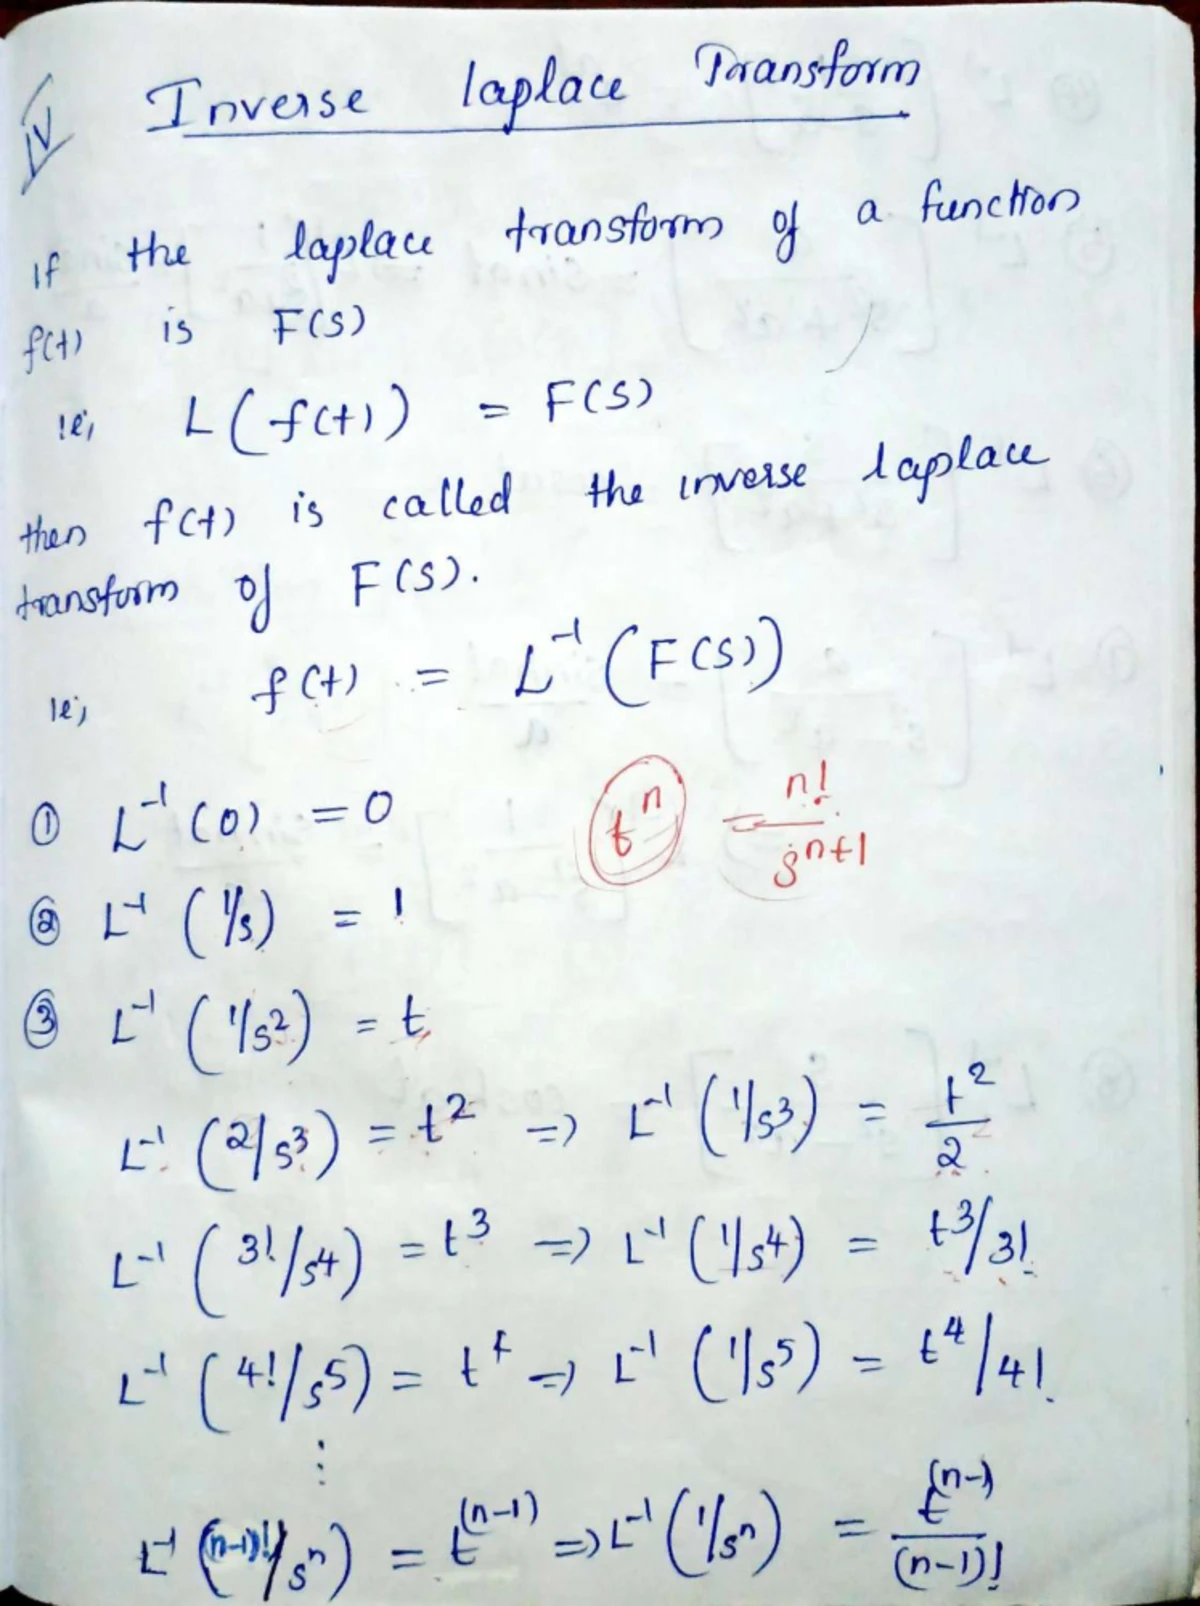 IV
Inverse laplace Transform
If the laplace transform of a function
f(t) is F(S)
ie, L(f(t)) = F(S)
then f(t) is called the inverse laplace
transform of F(S).
ie, f(t) = L⁻¹(F(S))
① L⁻¹(0) = 0
tⁿ = n!/sⁿ⁺¹
② L⁻¹(1/s) = 1
③ L⁻¹(1/s²) = t
L⁻¹(2/s³) = t² => L⁻¹(1/s³) = t²/2
L⁻¹(3!/s⁴) = t³ => L⁻¹(1/s⁴) = t³/3!
L⁻¹(4!/s⁵) = t⁴ => L⁻¹(1/s⁵) = t⁴/4!
⋮
L⁻¹((n-1)!/sⁿ) = t⁽ⁿ⁻¹⁾ => L⁻¹(1/sⁿ) = t⁽ⁿ⁻¹⁾/(n-1)!